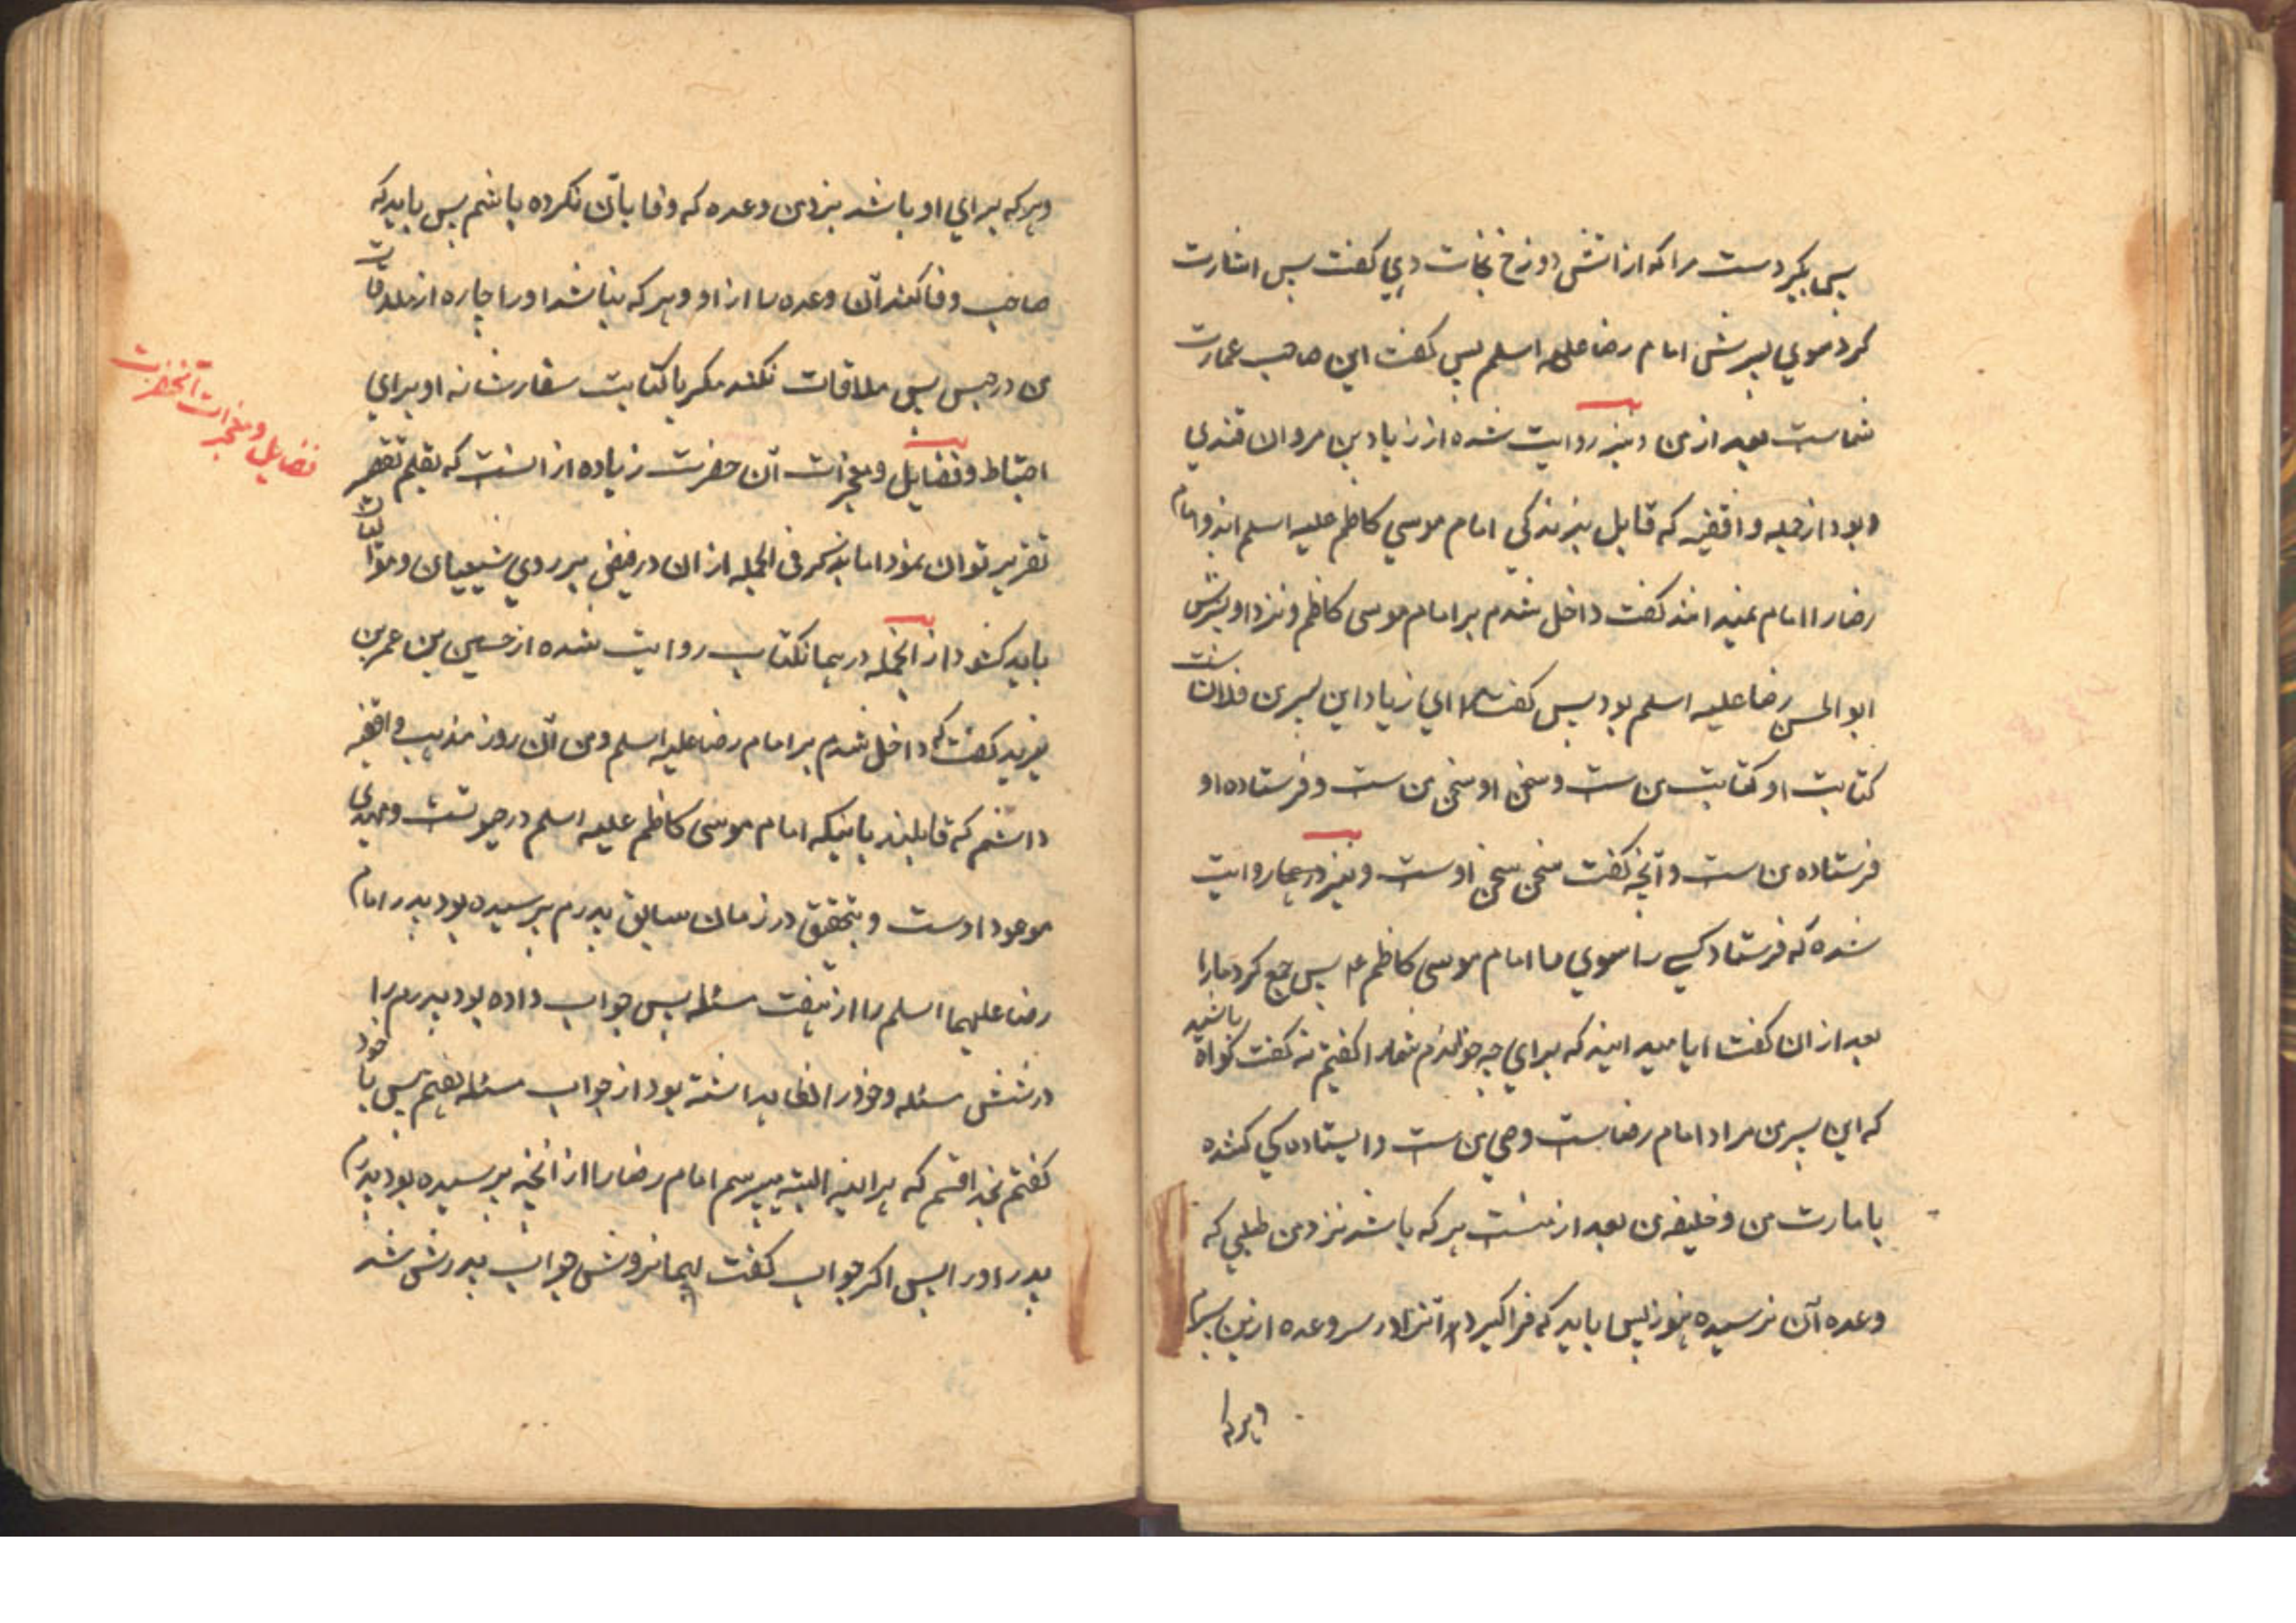 پس بگیر دست مرا که از اتش دوزخ نجات دهی گفت پس اشارت
کرد بسوی پسرش امام رضا علیه اسلم پس گفت این صاحب عمارت
شماست بعد از من و نیز روایت شده از زیاد بن مروان قندی
و بود از جمله واقفیه که قایل بزندگی امام موسی کاظم علیه اسلم اند و امام
رضا را امام نمیدانند گفت داخل شدم بر امام موسی کاظم و نزد او پسرش
ابوالحسن رضا علیه اسلم بود پس گفت مرا ای زیاد این پسر من فلانست
کتابت او کتابت من ست و سخن او سخن من ست و فرستاده او
فرستاده من است و آنچه گفت سخن سخن اوست و نیز در همان روایت
شده که فرستاد کسی را بسوی ما امام موسی کاظم ع پس جمع کرد مارا
بعد از ان گفت ایا میدانید که برای چه خواندم شمارا گفتیم نه گفت گواه باشید
که این پسر من مراد امام رضاست وصی من ست و ایستاده گی کننده
بامارت من و خلیفه من بعد از منست هر که باشد نزد من طلبی که
وعده آن نرسیده هنوز پس باید که فراگیرد آنرا در سر وعده ازین پسرم
و هر که
و هر که برای او باشد نزد من وعده که وفا بآن نکرده باشم پس باید که
صاحب وفا کند آن وعده را از او و هر که نباشد اورا چاره از ملاقات
من در حبس پس ملاقات نکند مگر با کتابت سفارشانه او برای
احتیاط و فضایل و معجزات آن حضرت زیاده از انست که بقلم
فضایل و معجزات آنحضرت
تقریر توان نمود اما بذکر فی الجمله از ان در فیض بر روی شیعیان و موالیان
باید کشود از انجمله در همانکتاب روایت شده از حسین بن عمر بن
یزید گفت که داخل شدم بر امام رضا علیه اسلم و من آن روز مذهب واقفیه
داشتم که قایلند باینکه امام موسی کاظم علیه اسلم در حیوتست و مهدی
موعود اوست و بتحقیق در زمان سابق پدرم پرسیده بود پدر امام
رضا علیهما اسلم را از هفت مسئله پس جواب داده بود پدرم را
در شش مسئله و خود را نگاهداشته بود از جواب مسئله هفتم پس با خود
گفتم بخدا قسم که هر اینه البته میپرسم امام رضا را از انچه پرسیده بود پدرم
پدر او را پس اگر جواب گفت بهمانروش جواب پدرش شد